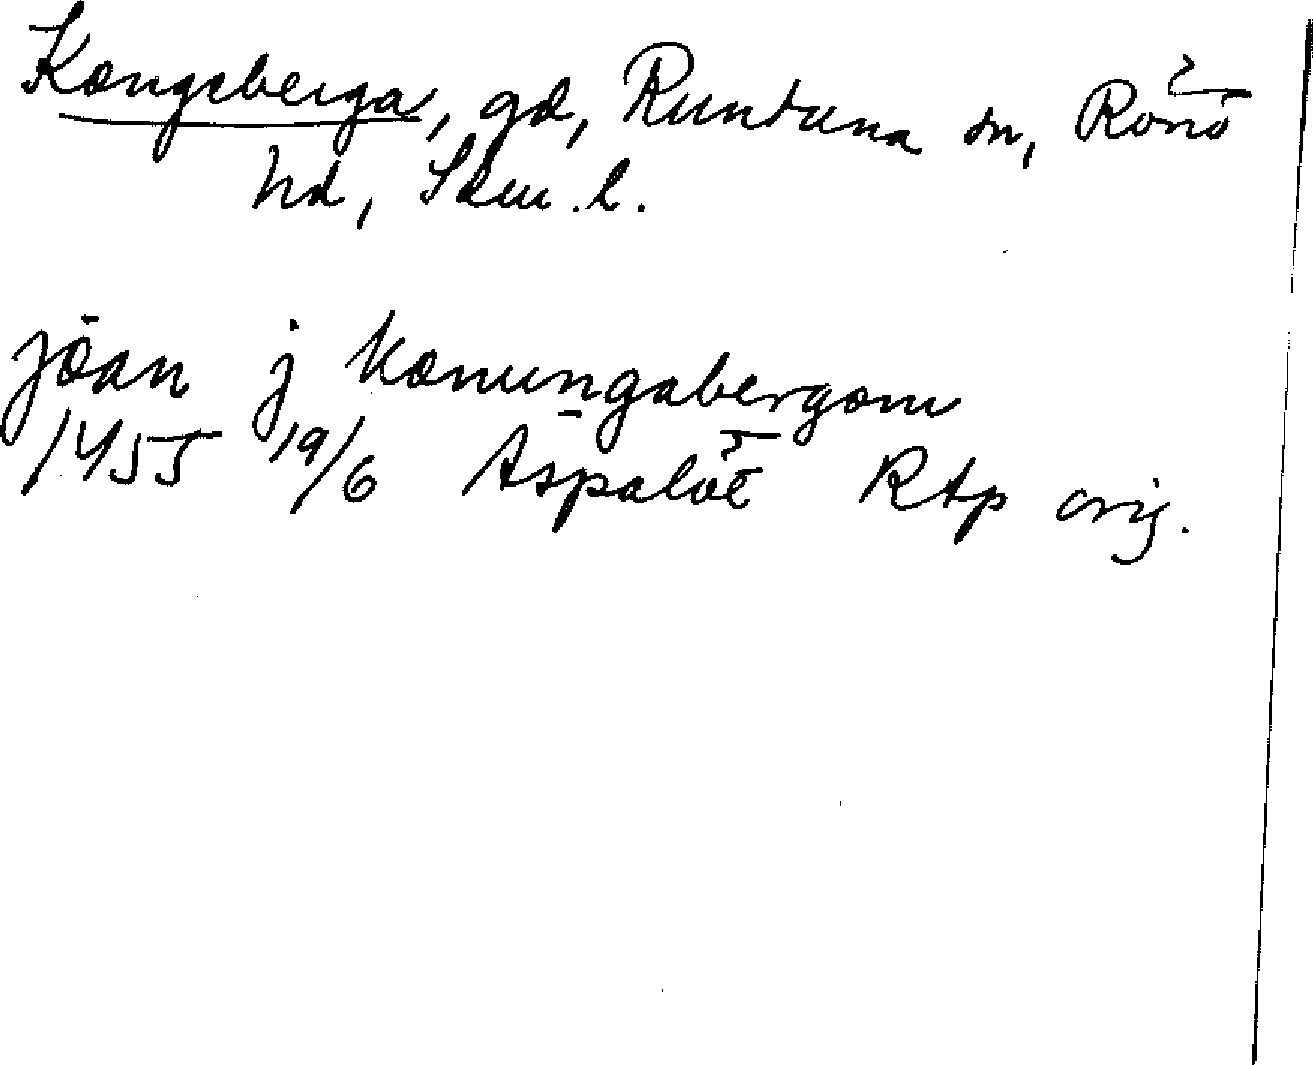 Kongsberga, gd, Runtuna sn, Rönö
hd, Sdm. l.
jöan j konungabergom
1455 19/6 Aspalöt RAp orig.